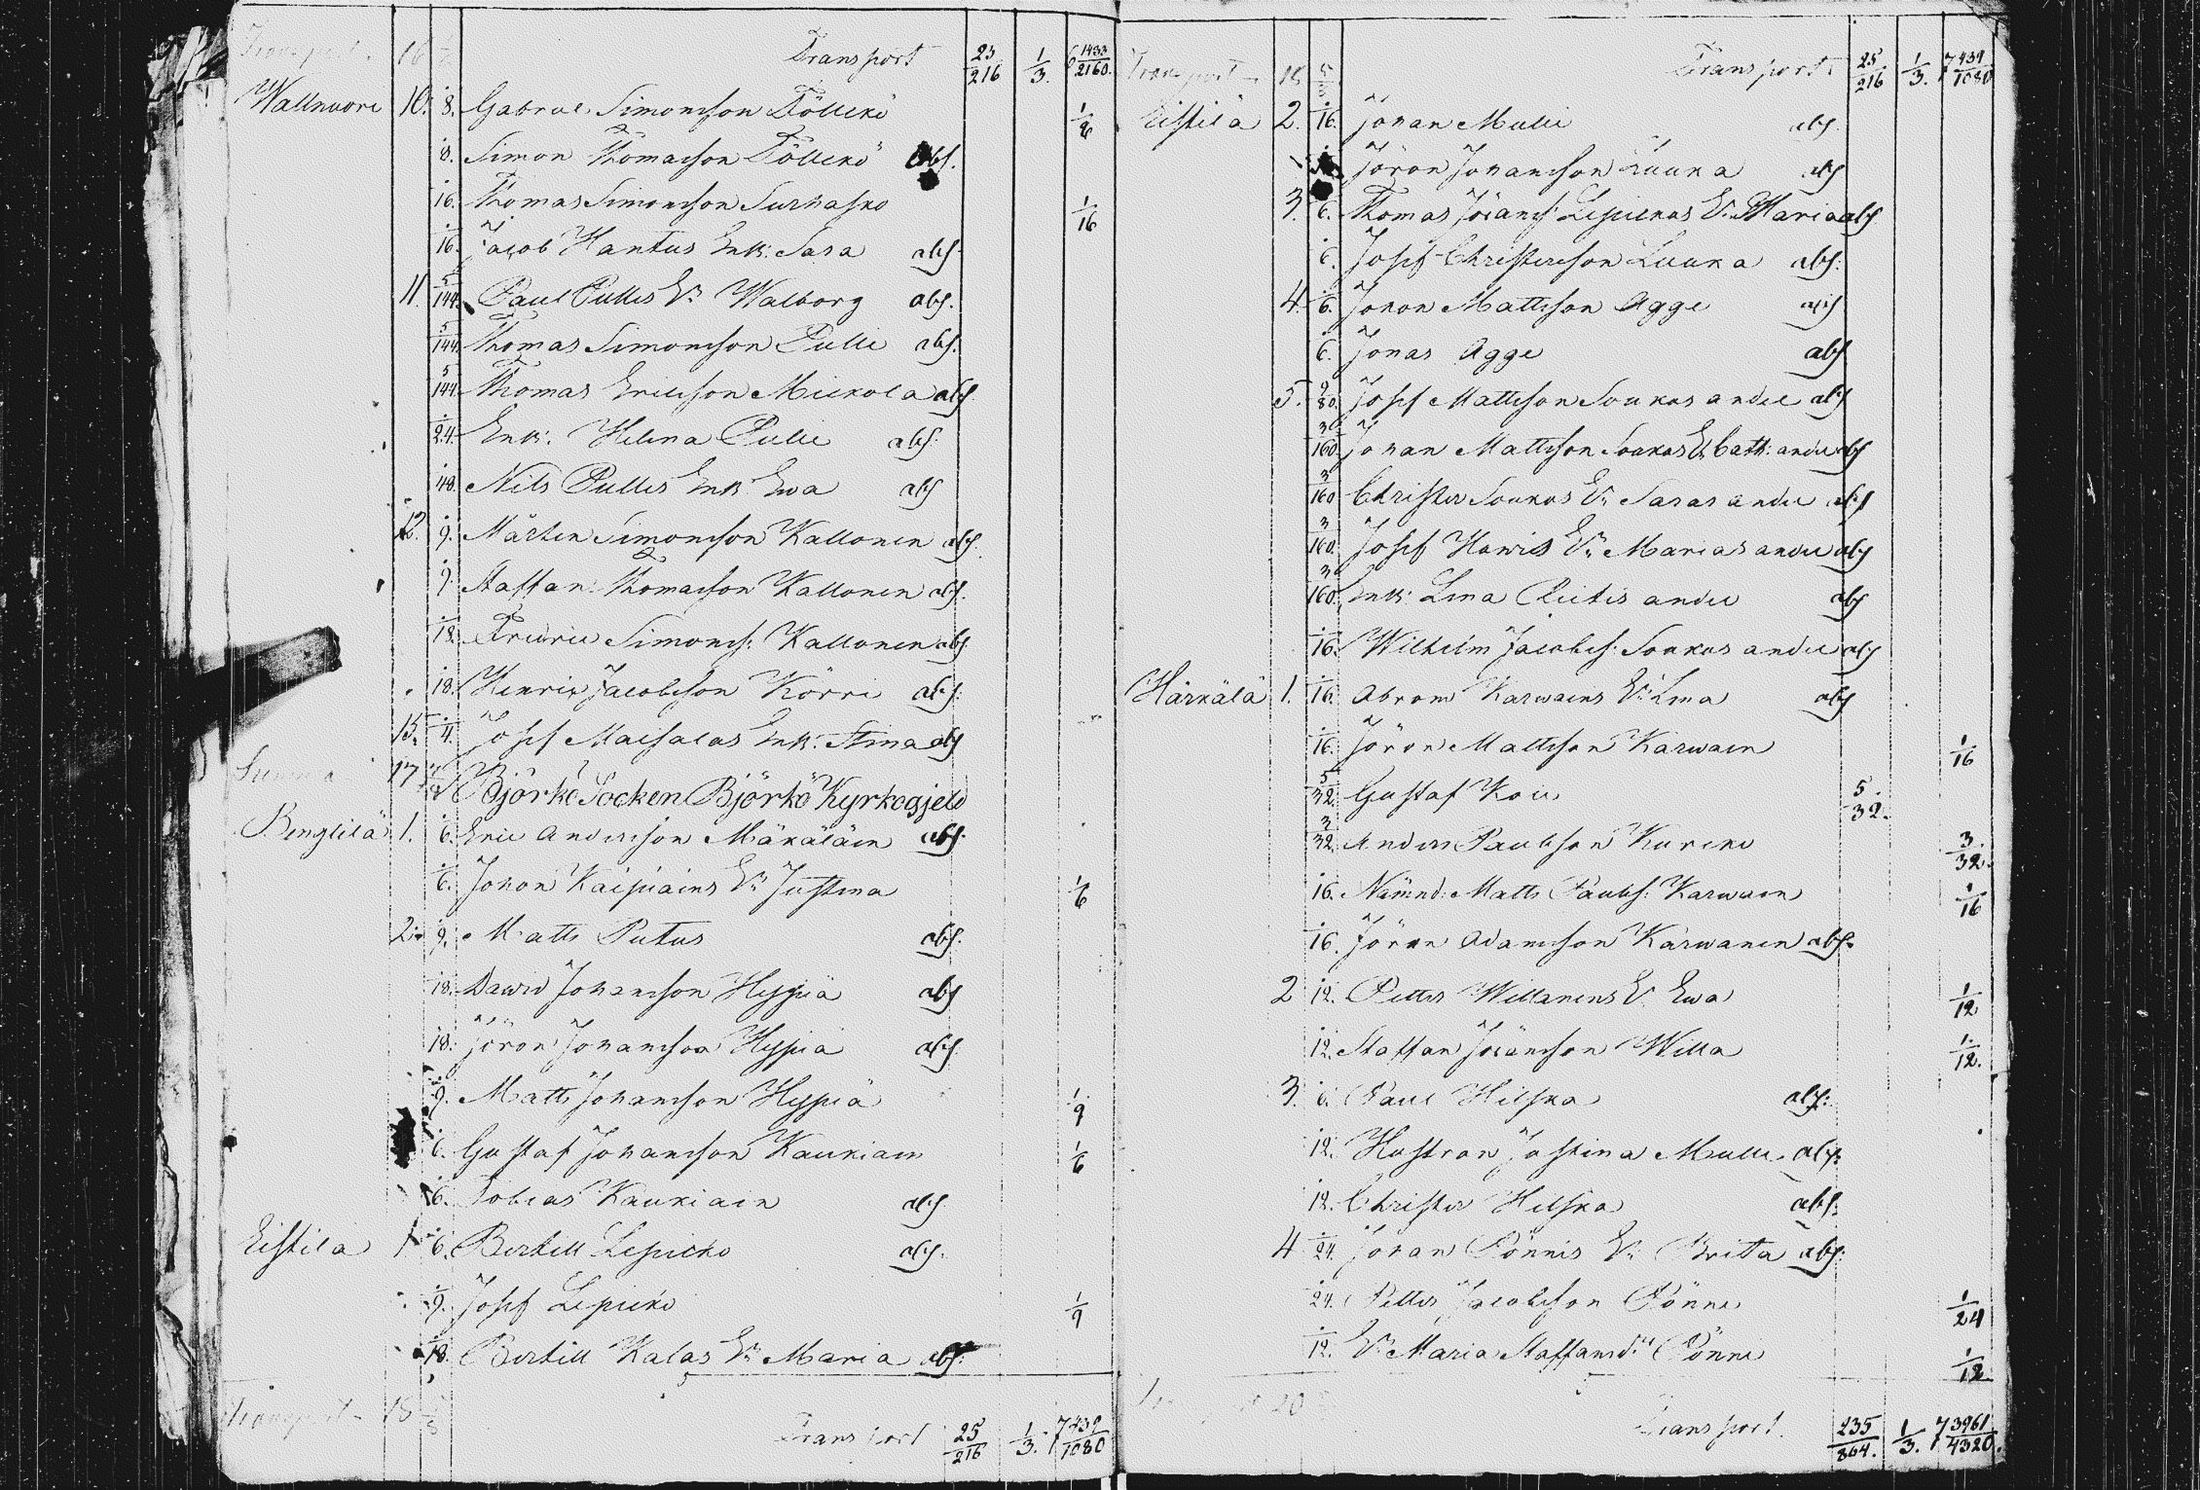 Transport 16 Transport 25/216 1/3. 6 1433/2160.
Wallnuori 10. 1/8. Gabriel Simonsson Töllikö 1/8
1/8. Simon Thomasson Töllikö abs.
1/16. Thomas Simonsson Surnasko 1/16
1/16. Jacob Hantus Enk: Sara abs.
11. 5/144. Paul Pullis Er Walborg abs.
5/144. Thomas Simonsson Pulli abs.
5/144. Thomas Ericsson Mickola abs.
1/24. Enk: Helena Pulli abs:
1/48. Nils Pullis Enk Ewa abs
12. 1/9. Mårten Simonsson Kallonen abs.
1/9. Staffan Thomasson Kallonen abs.
1/18. Fredric Simonss: Kallonen abs.
1/18. Henric Jacobsson Körri abs:
13. 1/4. Josef Maisalas Enk: Stina abs
Summa 17
Björkö Socken Björkö Kyrkogjeld
Bengtilä 1. 1/6. Eric Andersson Mäkäläin abs.
1/6. Johan Kaipiains Er Justina 1/6
2. 1/9. Matts Putus abs.
1/18. David Johansson Hyppiä abs
1/18. Jöran Johansson Hyppiä abs
1/9. Matts Johansson Hyppiä 1/9
1/6. Gustaf Johansson Kaukiain 1/6
1/6. Tobias Kaukiain abs
Eistilä 1 1/6. Bertill Lepickö abs.
1/9. Josef Lepickö 1/9
1/18. Bertill Kalas Er Maria abs:
Transport 18 Transport 25/216 1/3. 7 439/1080
Transport 18 Transport 25/216 1/3. 7 439/1080
Eistilä 2. 1/16. Johan Mulli abs.
Jöran Johansson Luuka abs
3. 1/6. Thomas Jöranss: Lepickos Er Maria abs
1/6. Josef Christersson Luuka abs:
4. 1/6. Johan Mattsson Agge abs
1/6. Jonas Agge abs
5. Josef Mattsson Soukas andel abs
3/160. Johan Mattsson Soukas Er Cath: andel abs
3/160 Christer Soukas Er Saras andel abs
3/160. Josef Hawis Er Marias andel abs
3/160. Enk: Lena andel abs
1/16. Wilhelm Jacobss: Soukas andel abs
Härkälä 1. 1/16. Abram Karwains Er Lena abs
1/16. Jöran Mattsson Karwain 1/16
5/32. Gustaf 5/32.
3/32. Anders Paulsson Kurcki 3/32.
1/16. Nämnd: Matts Paulss: Karwain 1/16
1/16. Jöran Adamsson Karwanen abs.
2 1/12. Petter Willanens Er Ewa 1/12
1/12. Staffan Jöransson Willa 1/12.
3. 1/6. Paul Hilska abs:
1/12. Hustron Justina Mulli abs:
1/12. Christer Hilska abs:
4 1/24. Johan Pönnis Er Brita abs:
1/24. Petter Jacobsson Pönni 1/24
1/12. Er Maria Staffansdr Pönni 1/12
20 Transport. 235/864. 1/3. 7 3961/4320.